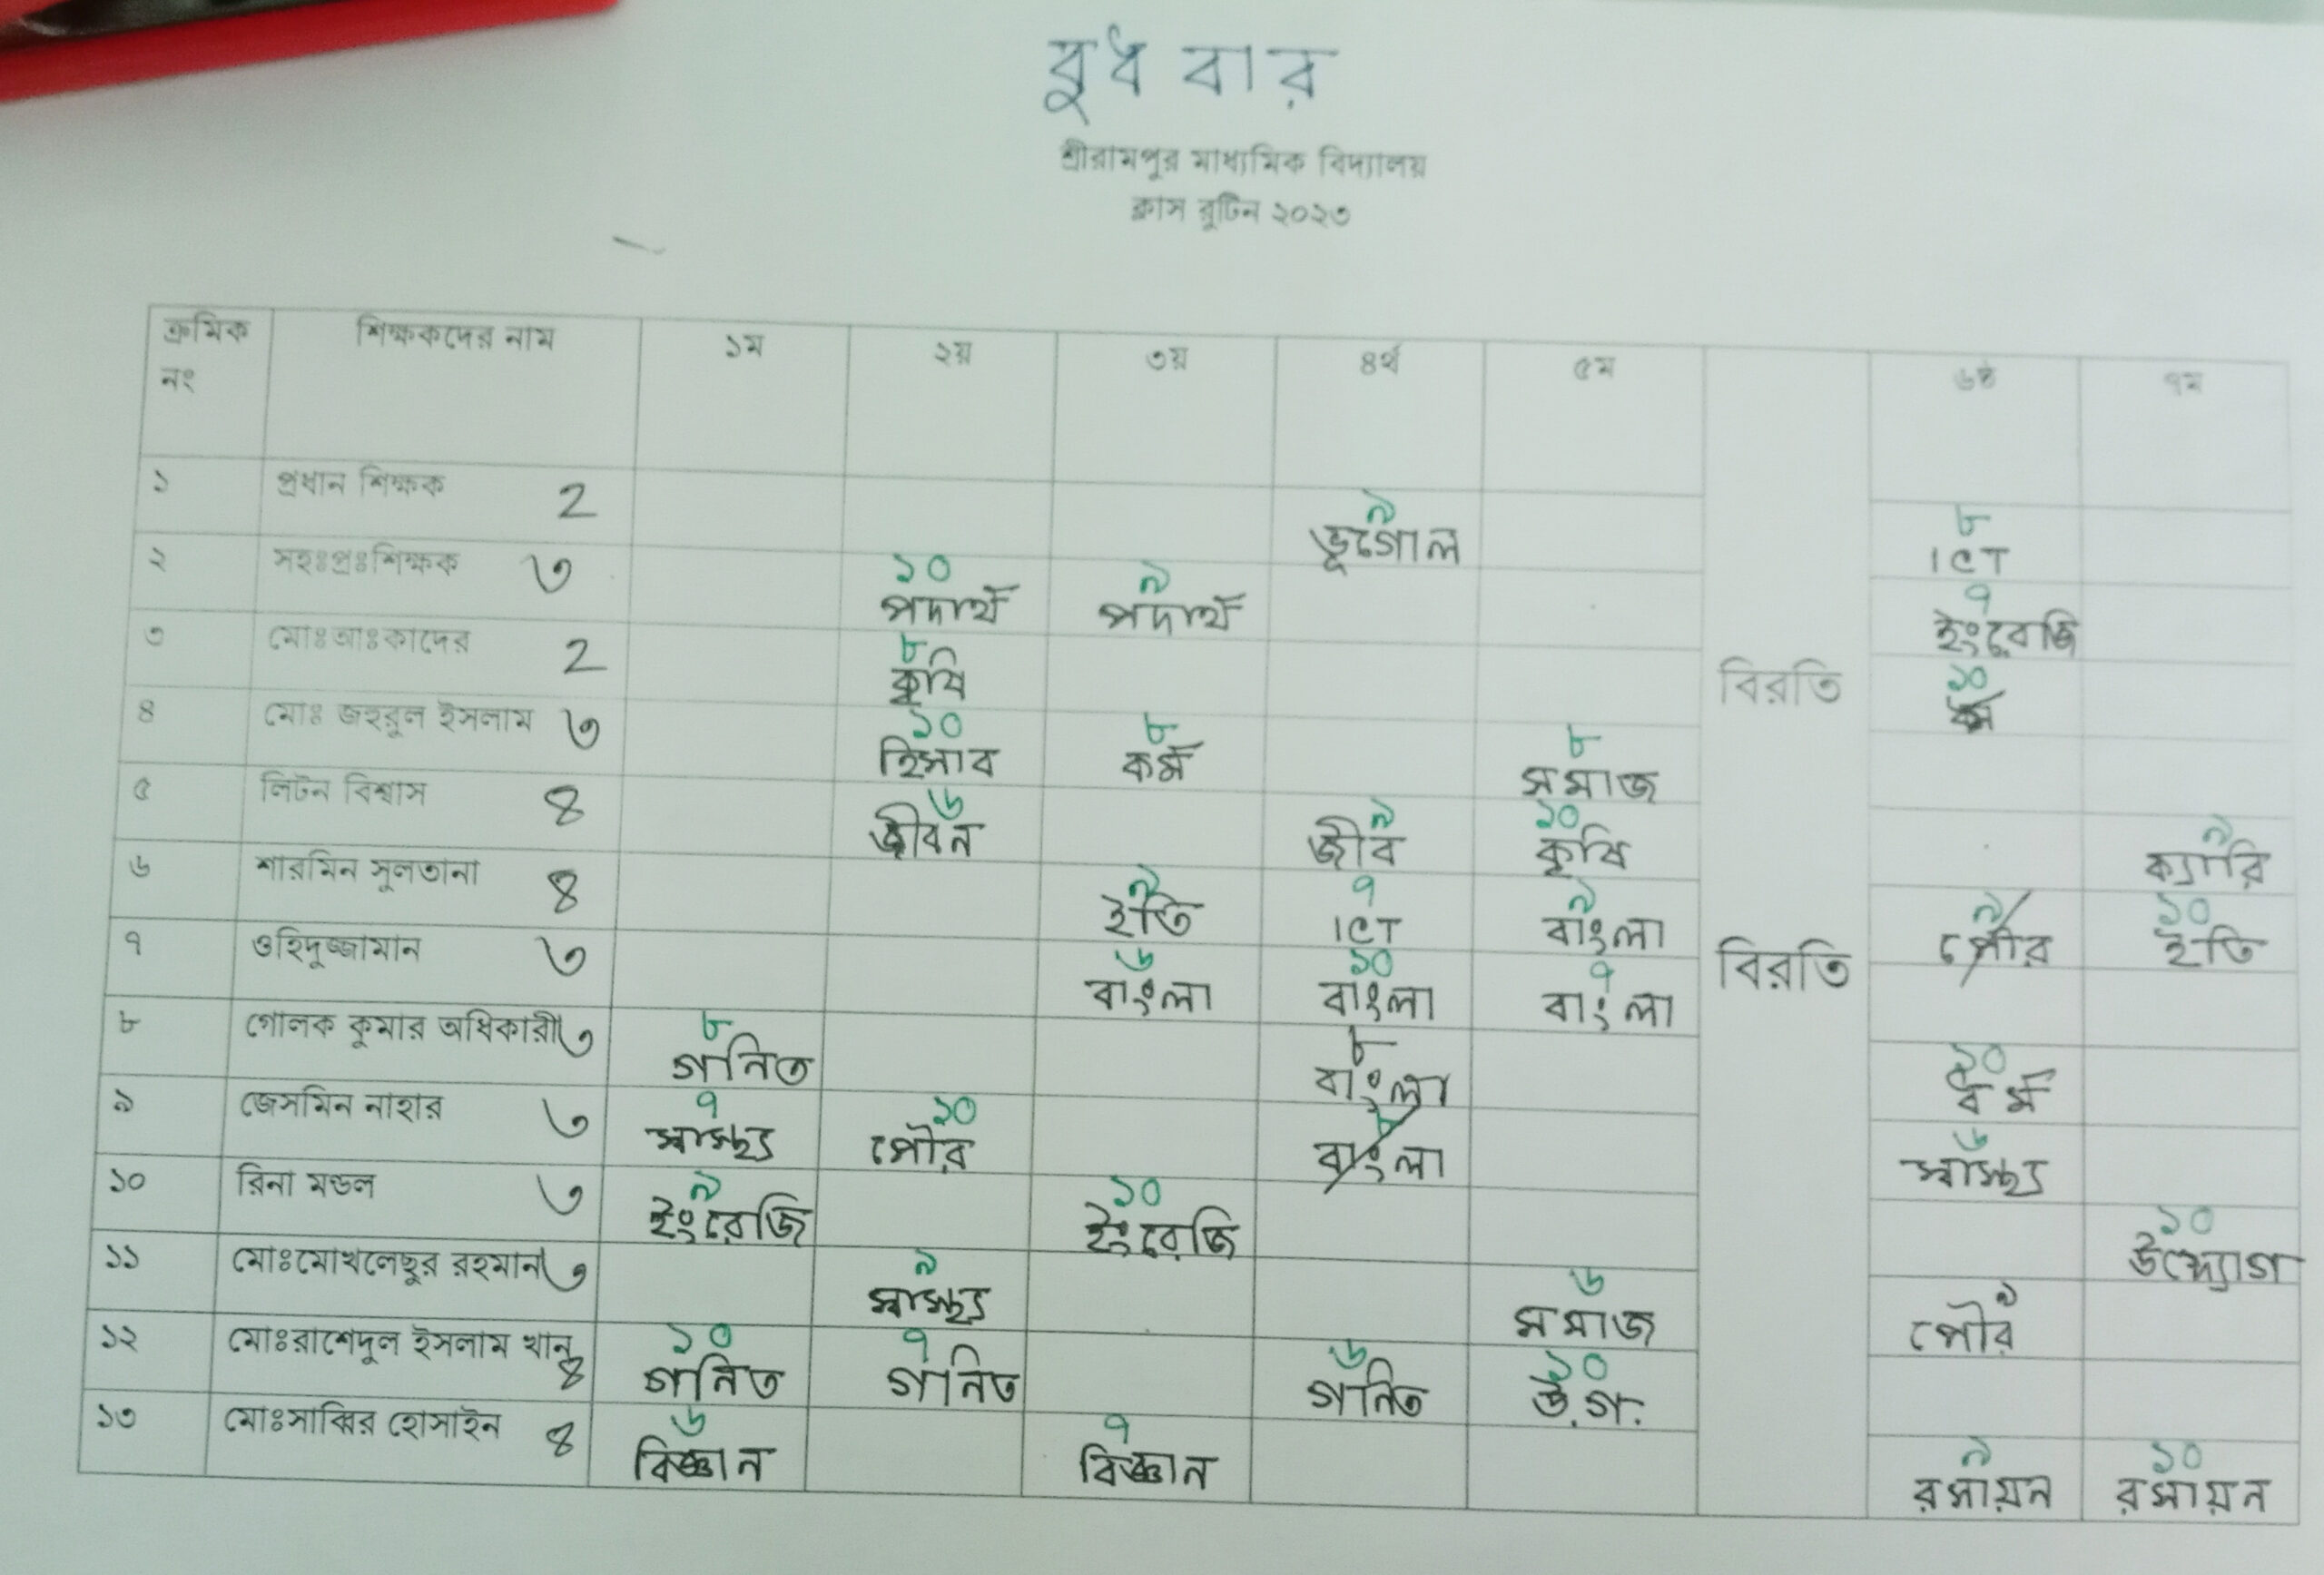 বুধ বার
শ্রীরামপুর মাধ্যমিক বিদ্যালয়
ক্লাস রুটিন ২০২৩
ক্রমিক নং শিক্ষকদের নাম ১ম ২য় ৩য় ৪র্থ ৫ম ৬ষ্ঠ ৭ম
১ প্রধান শিক্ষক 2 ৯ ভূগোল ৮ ICT
২ সহঃপ্রঃশিক্ষক ৩ ১০ পদার্থ ৯ পদার্থ ৭ ইংরেজি
৩ মোঃআঃকাদের 2 ৮ কৃষি বিরতি ১০
৪ মোঃ জহুরুল ইসলাম ৩ ১০ হিসাব ৮ কর্ম ৮ সমাজ
৫ লিটন বিশ্বাস ৪ ৬ জীবন ৯ জীব ১০ কৃষি ৯ ক্যারি
৬ শারমিন সুলতানা ৪ ৯ ইতি ৭ ICT ৯ বাংলা ৯ পৌর ১০ ইতি
৭ ওহিদুজ্জামান ৩ ৬ বাংলা ১০ বাংলা ৭ বাংলা বিরতি
৮ গোলক কুমার অধিকারী ৩ ৮ গনিত ৮ বাংলা ১০ ধর্ম
৯ জেসমিন নাহার ৩ ৭ স্বাস্থ্য ১০ পৌর ৮ বাংলা ৬ স্বাস্থ্য
১০ রিনা মন্ডল ৩ ৯ ইংরেজি ১০ ইংরেজি ১০ উদ্যোগ
১১ মোঃমোখলেছুর রহমান ৩ ৯ স্বাস্থ্য ৬ সমাজ ৯ পৌর
১২ মোঃরাশেদুল ইসলাম খান ৪ ১০ গনিত ৭ গনিত ৬ গনিত ১০ উ.গ.
১৩ মোঃসাব্বির হোসাইন ৪ ৬ বিজ্ঞান ৭ বিজ্ঞান ৯ রসায়ন ১০ রসায়ন